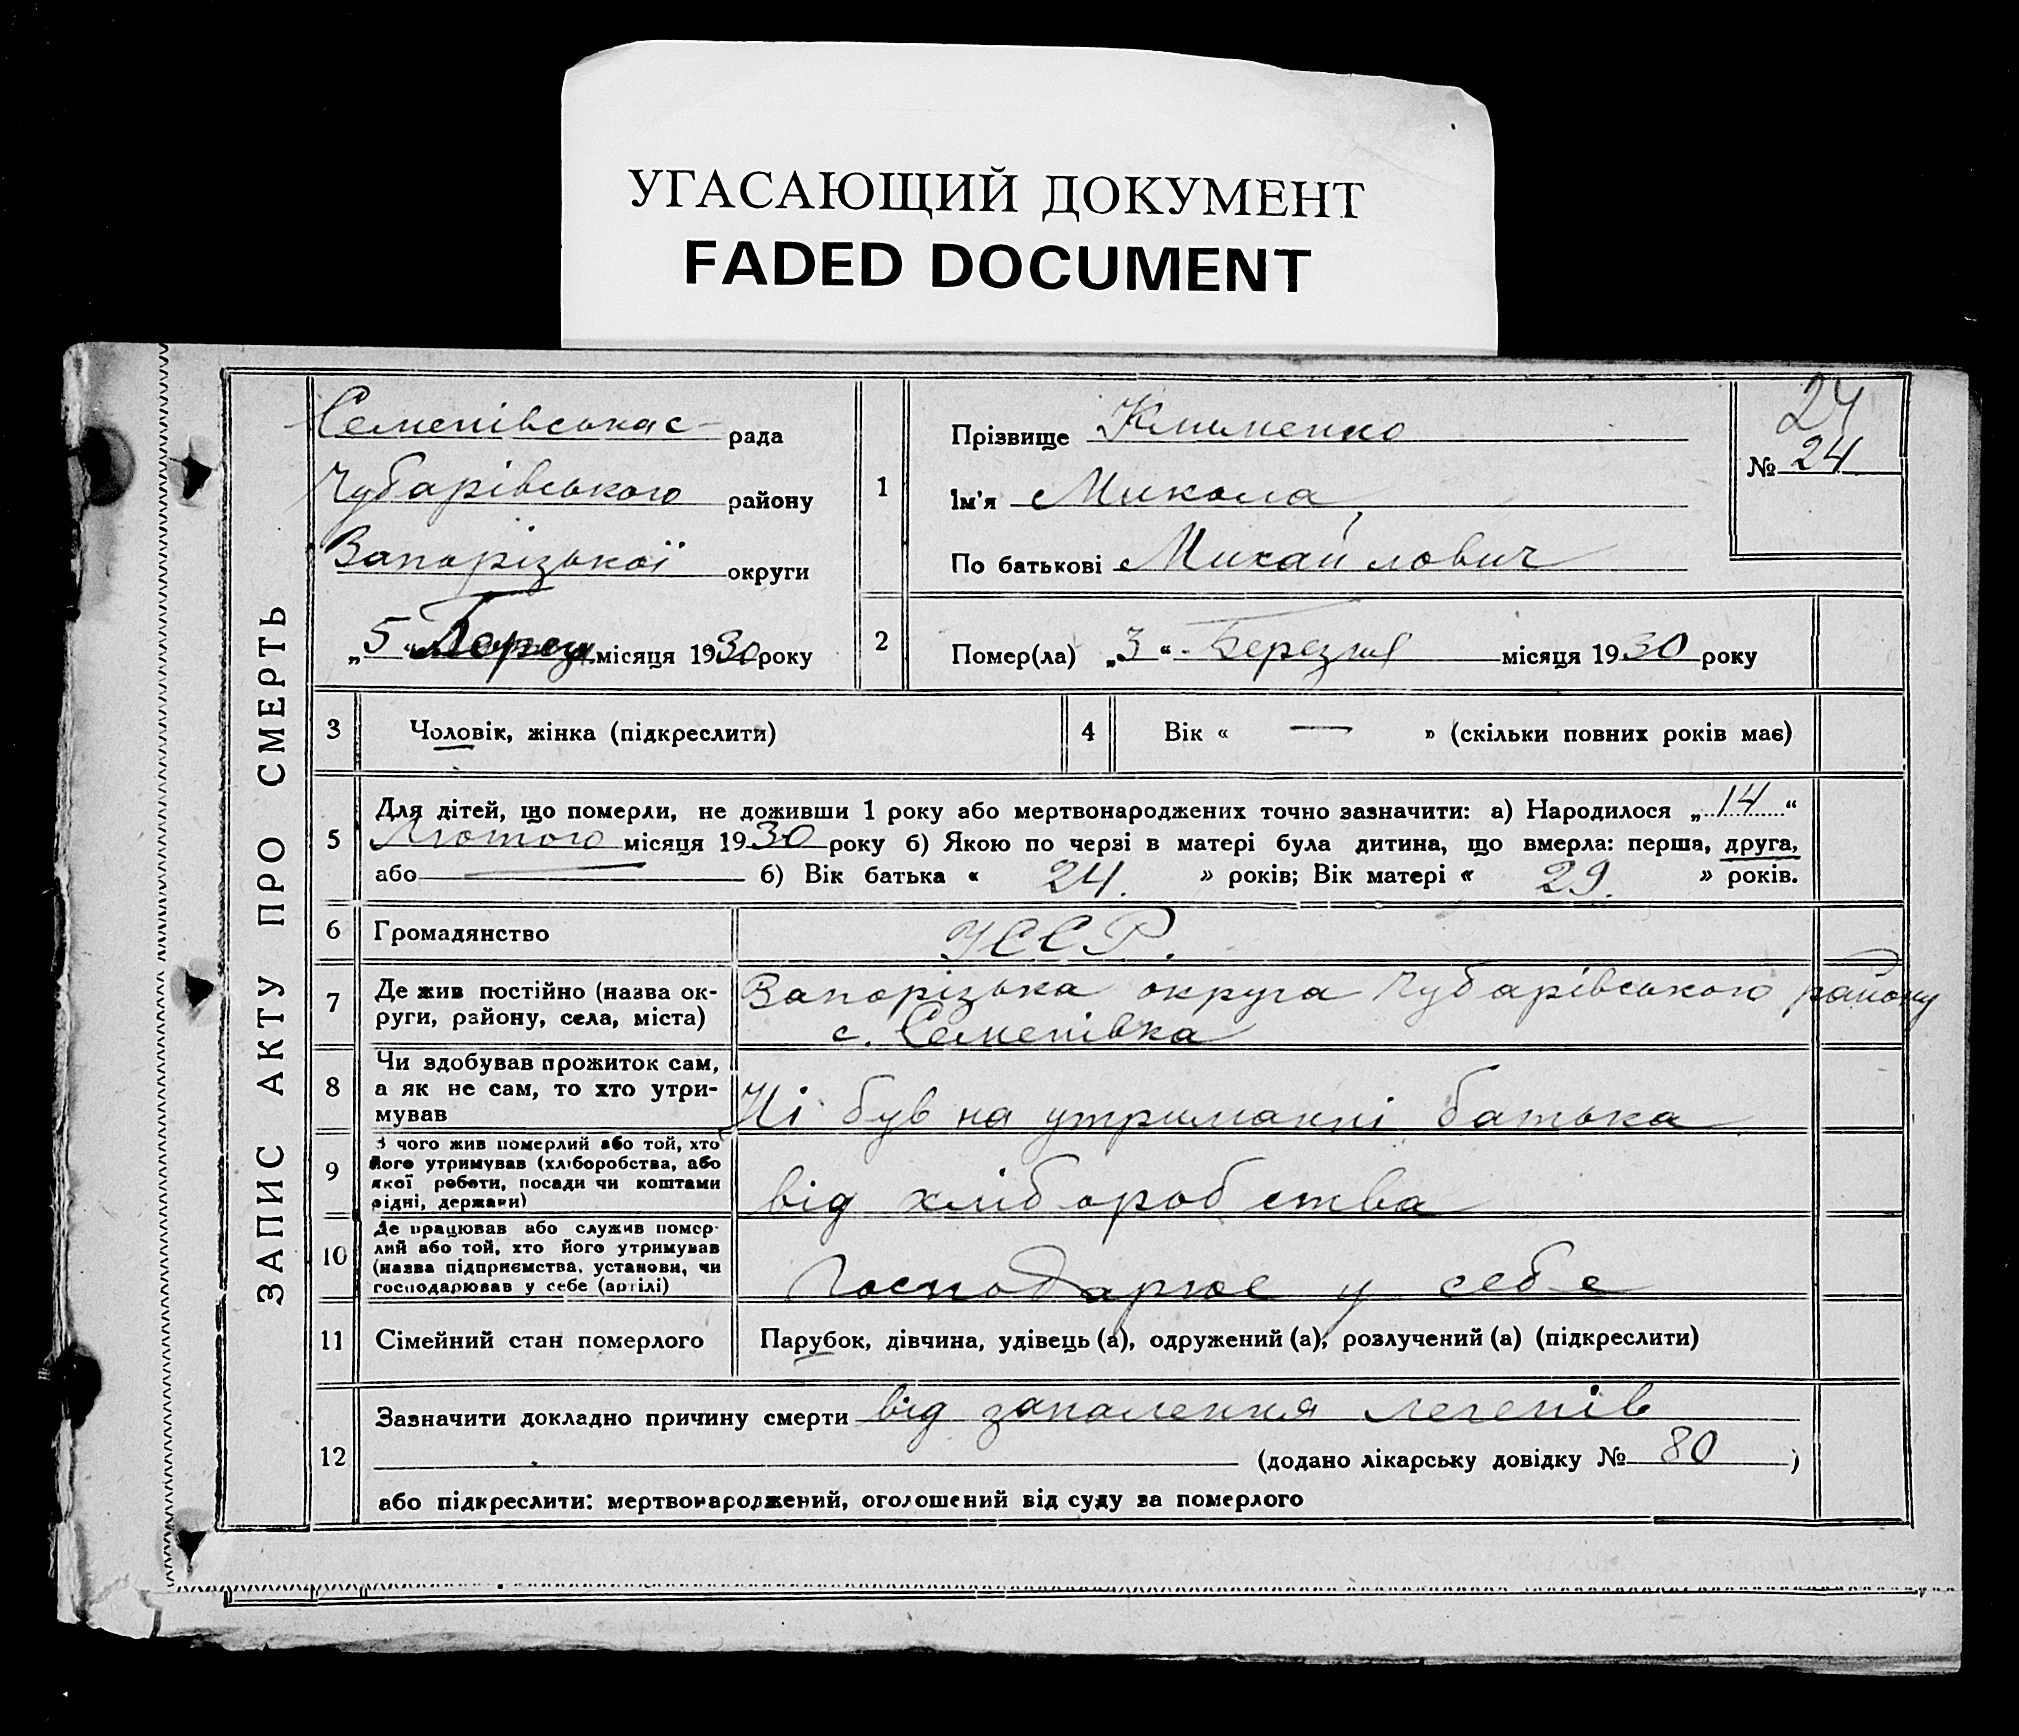 УГАСАЮЩИЙ ДОКУМЕНТ
FADED DOCUMENT
ЗАПИС АКТУ ПРО СМЕРТЬ
Семенівська с- рада
Чубарівського району
Запорізької округи
„5“ місяця 1930 року
1
Прізвище Клименко
Ім'я Микола
По батькові Михайлович
24
№ 24
2
Помер(ла) „3“ Березня місяця 1930 року
3 Чоловік, жінка (підкреслити)
4 Вік « — » (скільки повних років має)
5
Для дітей, що померли, не доживши 1 року або мертвонароджених точно зазначити: а) Народилося „14“
Лютого місяця 1930 року б) Якою по черзі в матері була дитина, що вмерла: перша, друга,
або — б) Вік батька « 24. » років; Вік матері « 29. » років.
6 Громадянство УССР.
7
Де жив постійно (назва ок-
руги, району, села, міста)
Запорізька округа Чубарівського району
с. Семенівка
8
Чи здобував прожиток сам,
а як не сам, то хто утри-
мував
Ні був на утриманні батька
9
З чого жив померлий або той, хто
його утримував (хліборобства, або
якої роботи, посади чи коштами
рідні, держави)
від хліборобства
10
Де працював або служив помер-
лий або той, хто його утримував
(назва підприємства, установи, чи
господарював у себе (артілі)
Господарює у себе
11 Сімейний стан померлого Парубок, дівчина, удівець (а), одружений (а), розлучений (а) (підкреслити)
12
Зазначити докладно причину смерти від запалення легенів
(додано лікарську довідку № 80)
або підкреслити: мертвонароджений, оголошений від суду за померлого